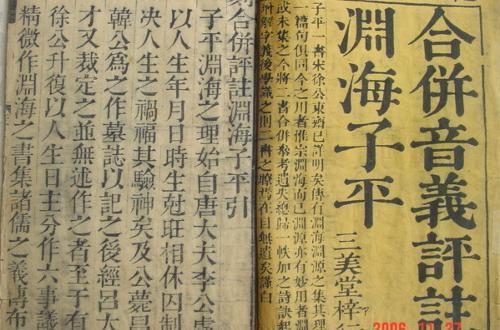 合併音義評註
淵海子平
三美堂梓
子平一書宋徐公東齋已詳明矣舊有淵海淵源之集其理
一篇句俱同今之用者惟宗淵海而已淵源亦有妙用者淵
或未集之今將二書合併參考遺失總歸一帙加之詩訣起
附解字義後學議之則二書之瞭然在目無遺矣謹白
刻合併評註淵海子平引
子平淵海之理始自唐大夫李公虛
以人生年月日時生尅旺相休囚制
決人生之禍福其驗神矣及公薨昌
韓公為之作墓誌以記之後經呂大
才又裁定之並無述作之者至于有
徐公升復以人生日主分作六事議
精微作淵海之書集諸儒之義傳布
2006